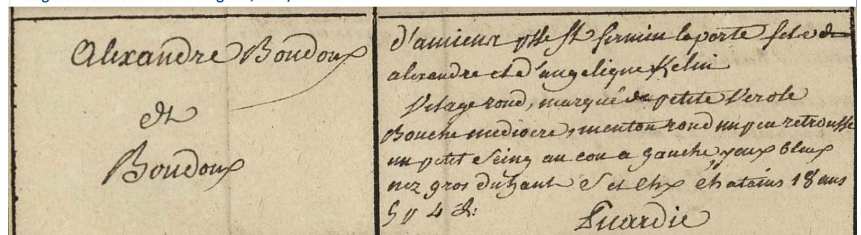 Alexandre Boudoux
dit
Boudoux
d'amiens psse st firmin la porte fils de
alexandre et d'angelique
Visage rond, marqué de petite verole
Bouche mediocre, menton rond un peu retroussé
un petit seing au cou a gauche, yeux bleux
nez gros du haut S et chx chatains 18 ans
5 p 4